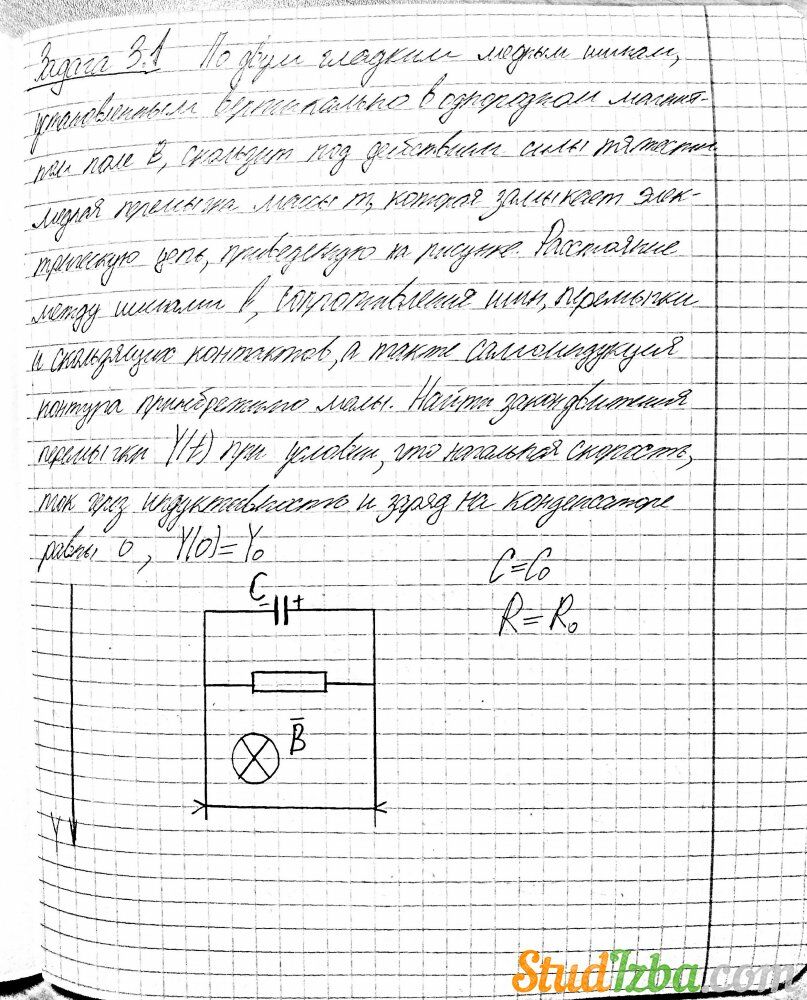 Задача 3.1 По двум гладким медным шинам,
установленным вертикально в однородном магнит-
ном поле B, скользит под действием силы тяжести
медная перемычка массы m, которая замыкает элек-
трическую цепь, приведенную на рисунке. Расстояние
между шинами l, сопротивления шин, перемычки
и скользящих контактов, а также самоиндукция
контура пренебрежимо малы. Найти закон движения
перемычки Y(t) при условии, что начальная скорость,
ток через индуктивность и заряд на конденсаторе
равны 0, Y(0)=Y₀
C=C₀
R=R₀
C
- +
B̅
Y
StudIzba.com